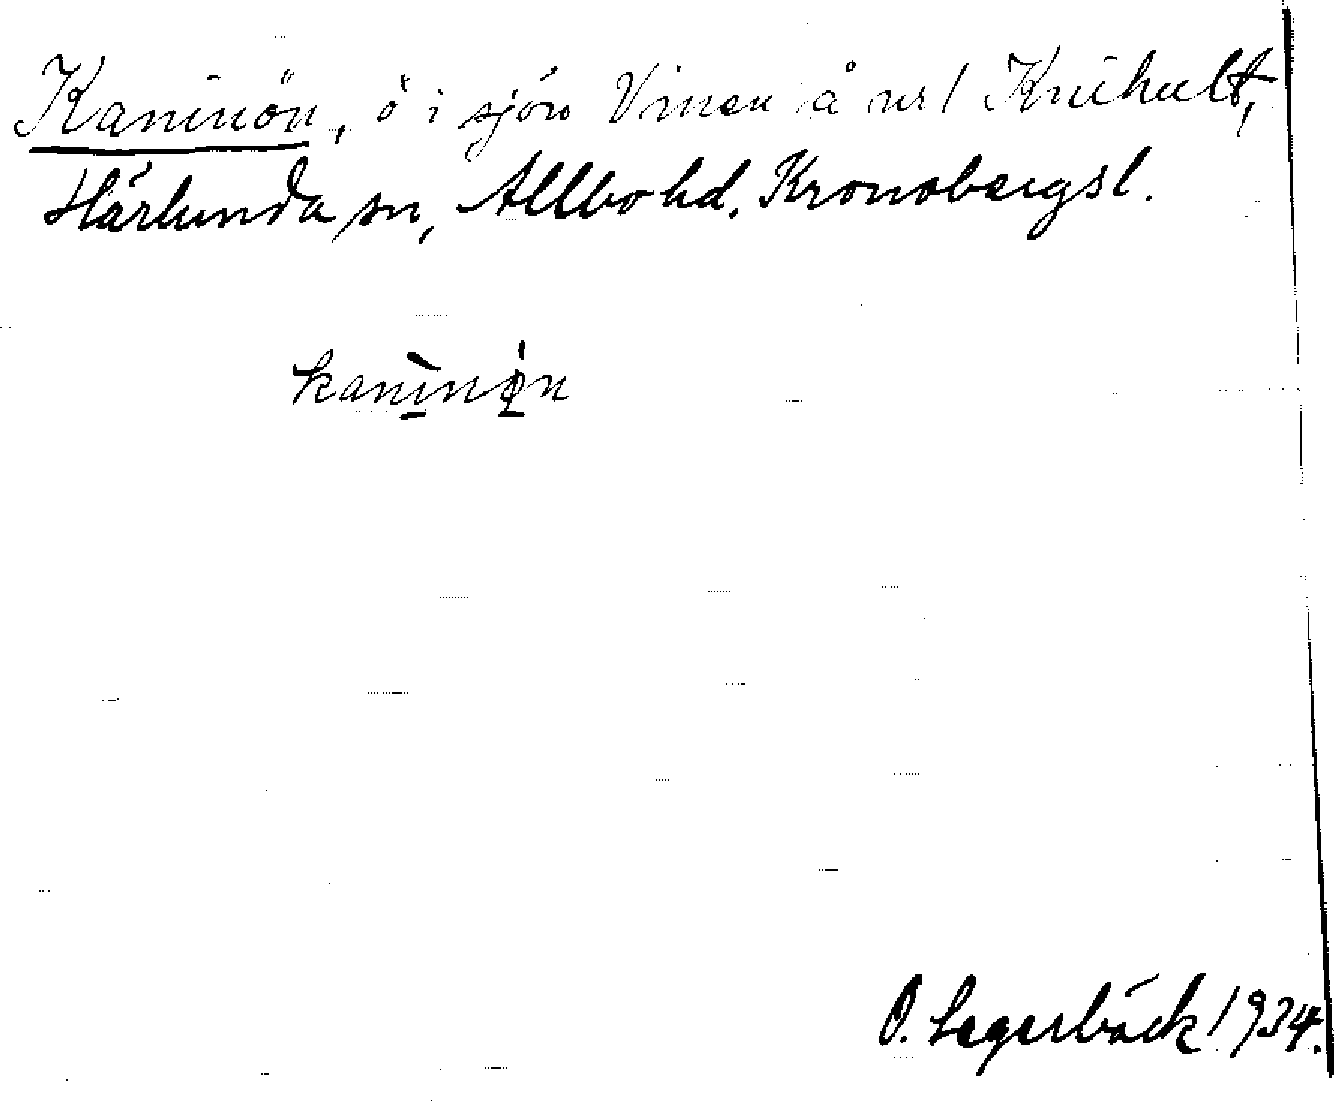 Kaninön, ö i sjön Vinen å nr 1 Knihult,
Härlunda sn, Allbo hd. Kronobergs l.
kanìnø̀n
O. Lagerbäck 1934.